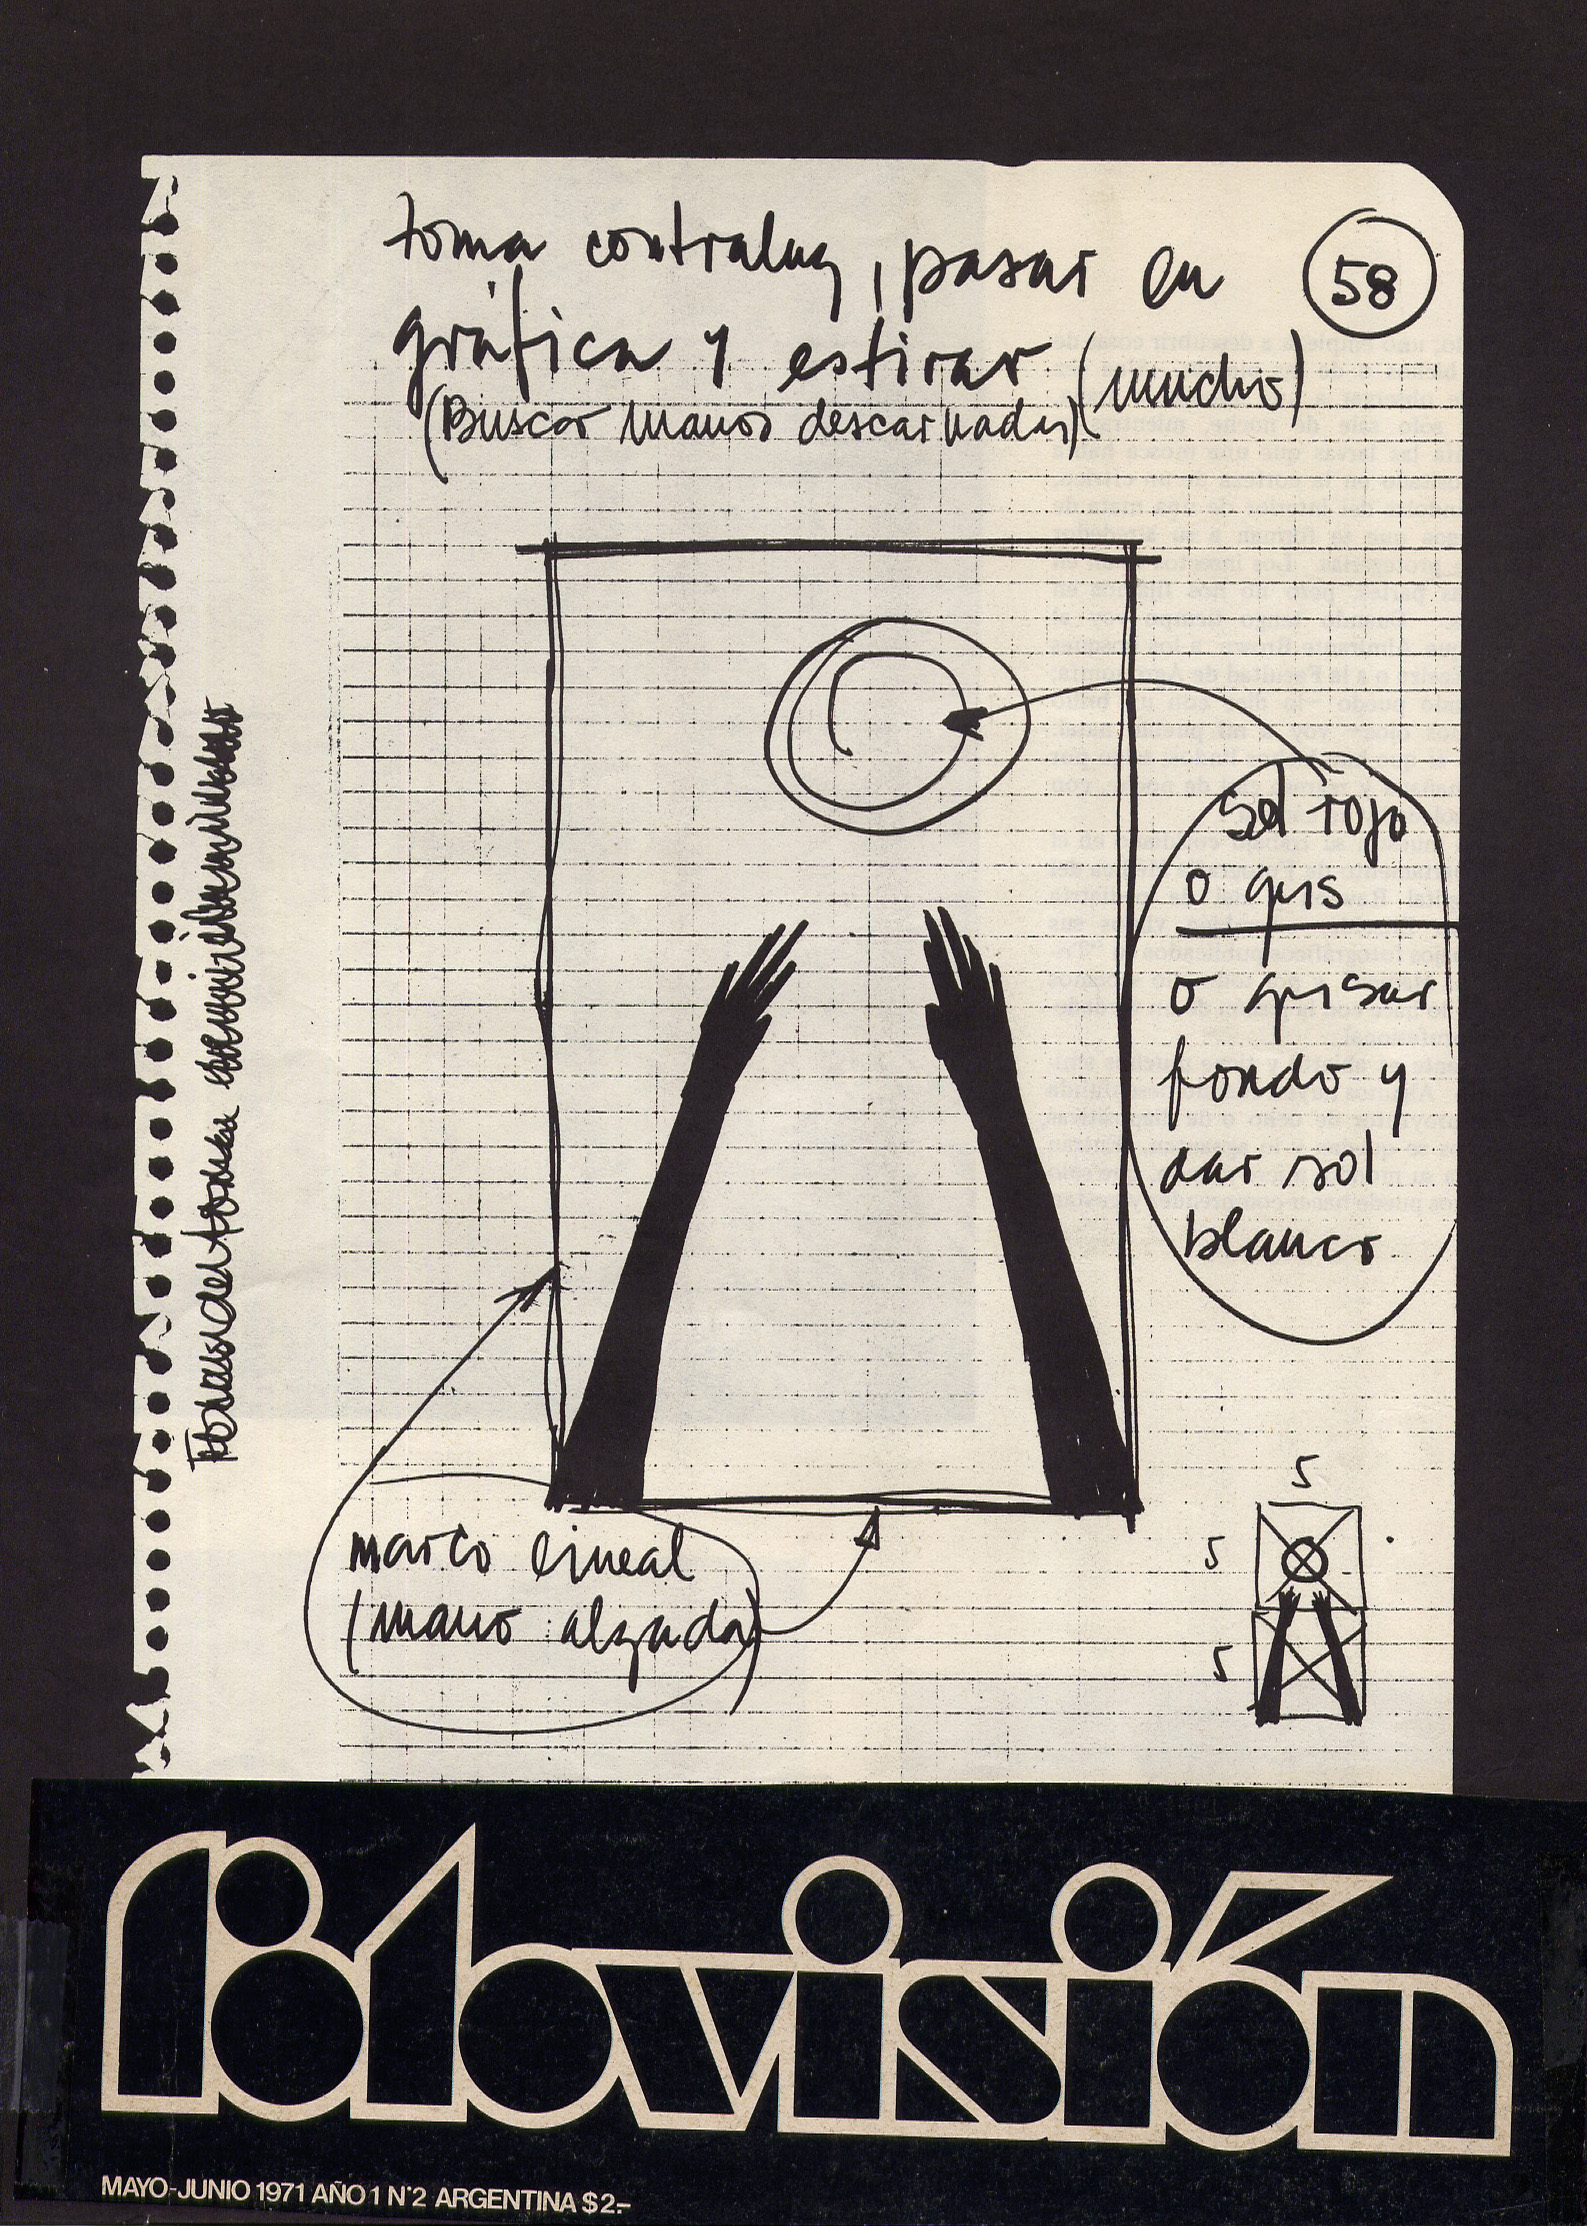 toma contraluz, pasar en
gráfica y estirar (mucho)
(Buscar manos descarnadas)
58
sol rojo
o gris
o grisar
fondo y
dar sol
blanco
marco lineal
(mano alzada)
5
5
5
fotovisión
MAYO-JUNIO 1971 AÑO 1 Nº2 ARGENTINA $2.-